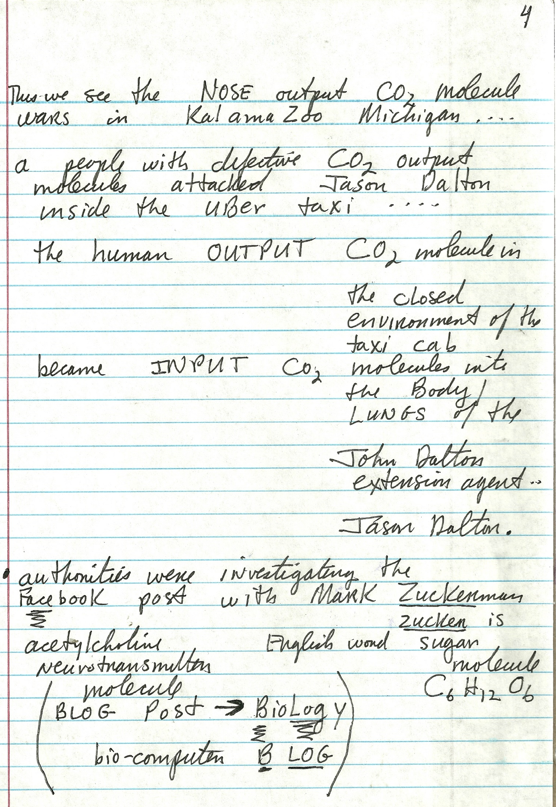 4
Thus we see the NOSE output CO2 molecule
wars in KalamaZoo Michigan ....
a people with defective CO2 output
molecules attacked Jason Dalton
inside the UBer taxi ....
the human OUTPUT CO2 molecule in
the closed
environment of the
taxi cab
became INPUT CO2 molecules into
the Body/
LUNGS of the
John Dalton
extension agent..
Jason Dalton.
• authorities were investigating the
Facebook post with MARK Zuckenman
zucken is
acetylcholine English word sugar
Neurotransmitter molecule
molecule C6 H12 O6
BLOG Post → BioLogy
bio-computer B LOG